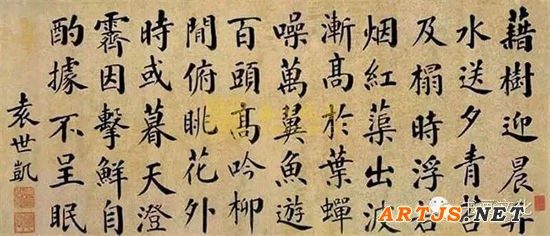 藉樹迎晨
水送夕青苔
及榻時浮
烟紅蕖出波
漸高於葉蟬
噪萬翼魚遊
百頭高吟柳
間俯眺花外
時或暮天澄
霽因擊鮮自
酌據不呈眠
袁世凱
ARTJS.NET